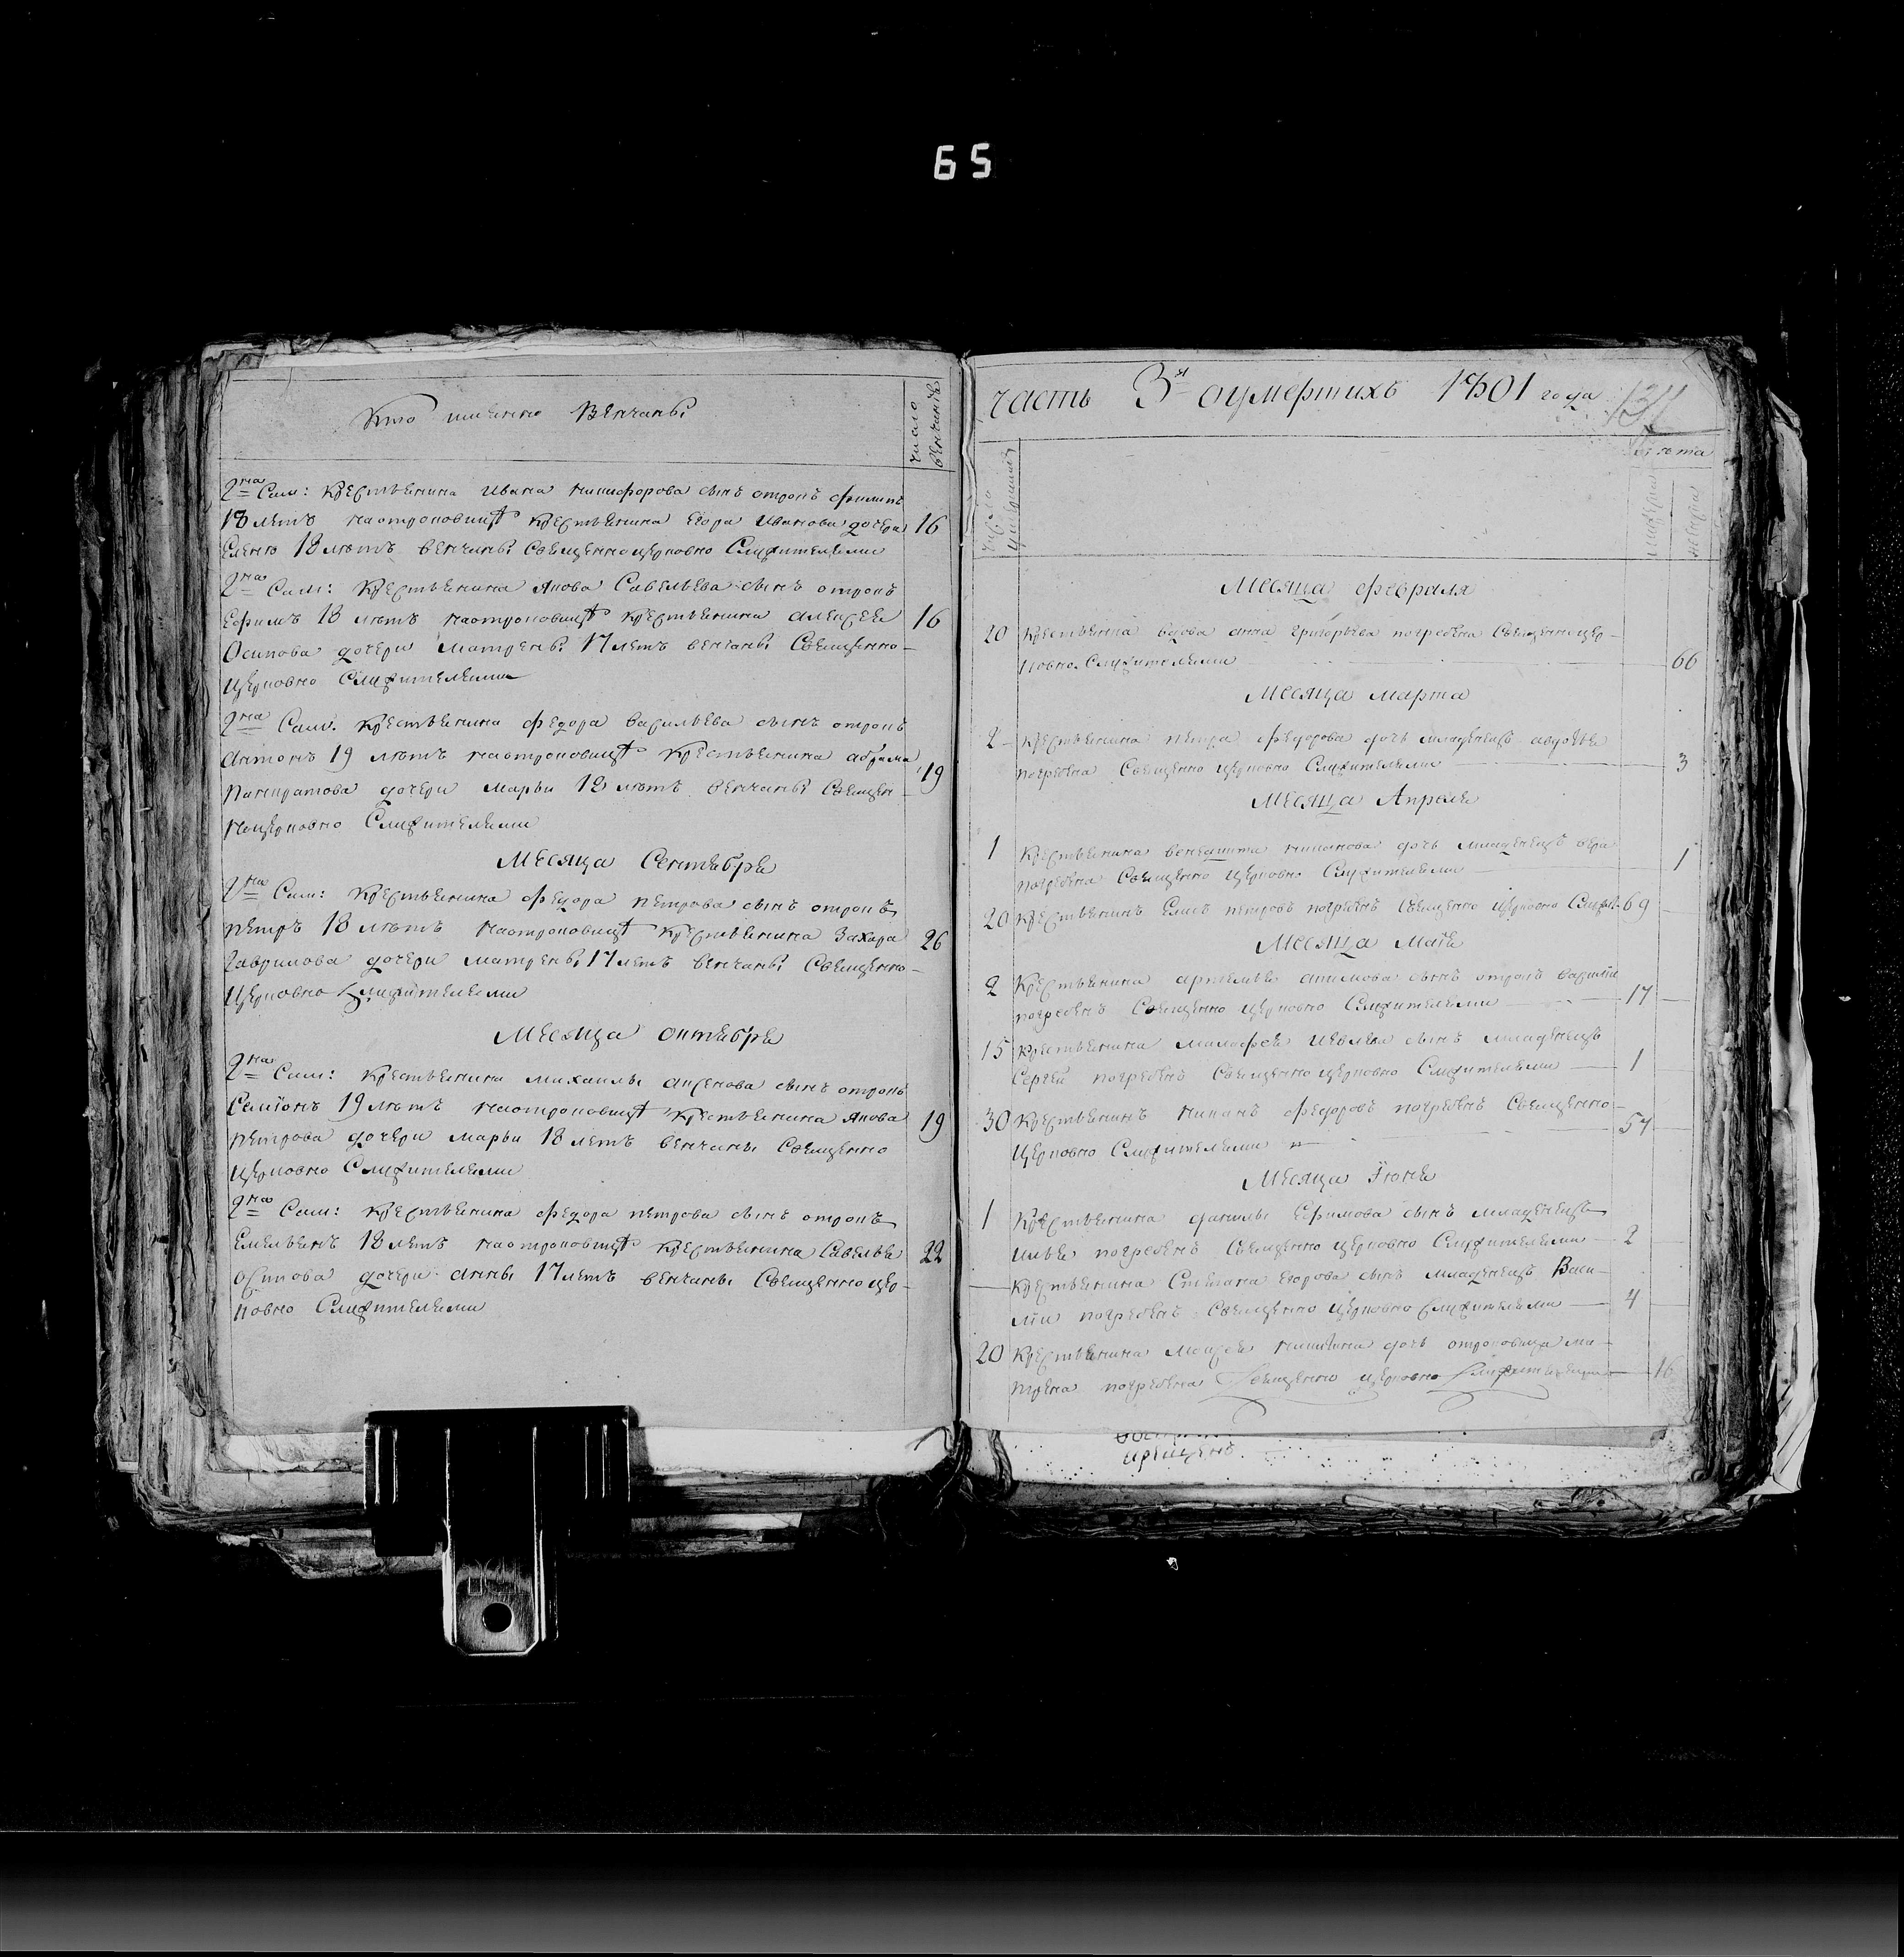 65
Кто именно венчаны
число венчанiѣ
2на Сам: крестьянина ивана никифорова сынъ отрокъ филипъ
18 летъ наотроковицѣ крестьянина егора иванова дочери 16
Елены 18 лѣтъ венчаны Священноцерковно Служителями
2на Сам: крестьянина якова Савельева сынъ отрокъ
Ефимъ 18 лѣтъ наотроковицѣ крестьянина алексея 16
Осипова дочери матрены 17 летъ венчаны Священно-
церковно Служителями
2на Сам: крестьянина федора васильева сынъ отрокъ
антонъ 19 лѣтъ наотроковицѣ крестьянина абрама 19
панкратова дочери марьи 18 лѣтъ венчаны Священ-
ноцерковно Служителями
Месяца Сентября
2на Сам: крестьянина федора петрова сынъ отрокъ
петръ 18 лѣтъ наотроковицѣ крестьянина Захара 26
гаврилова дочери матрены 17 летъ венчаны Священно-
церковно Служителями
Месяца октября
2на Сам: крестьянина михаилы аксенова сынъ отрокъ
Семiонъ 19 лѣтъ наотроковицѣ крестьянина якова 19
петрова дочери марьи 18 летъ венчаны Священно
церковно Служителями
2на Сам: крестьянина федора петрова сынъ отрокъ
Емельянъ 18 летъ наотроковицѣ крестьянина Савелья 22
осипова дочери анны 17 летъ венчаны Священноцер-
ковно Служителями
часть 3я оумертихъ 1801 года
131
лета
Число умершихъ
Месяца февраля
20 крестьянина вдова анна григорьева погребена Священноцер-
ковно Служителями 66
Месяца марта
2 крестьянина петра федорова дочь младенецъ авдотья
погребена Священно церковно Служителями 3
Месяца Апреля
1 крестьянина венедикта никонова дочь младенецъ вера
погребена Священно церковно Служителями 1
20 крестьянинъ Елисѣ петровъ погребенъ Священно церковно Служит- 69
Месяца Маiя
2 крестьянина артемья акимова сынъ отрокъ василiи
погребенъ Священно церковно Служителями 17
15 крестьянина малафея иевлева сынъ младенецъ
Сергей погребенъ Священно церковно Служителями 1
30 крестьянинъ никонъ федоровъ погребенъ Священно-
церковно Служителями 54
Месяца Iюня
1 крестьянина данилы Ефимова сынъ младенецъ
илья погребенъ Священно церковно Служителями 2
крестьянина Степана егорова сынъ младенецъ Васи-
лiи погребенъ Священно церковно Служителями 4
20 крестьянина моисея никитина дочь отроковица ма-
трена погребена Священно церковно Служителями 16
крещенъ